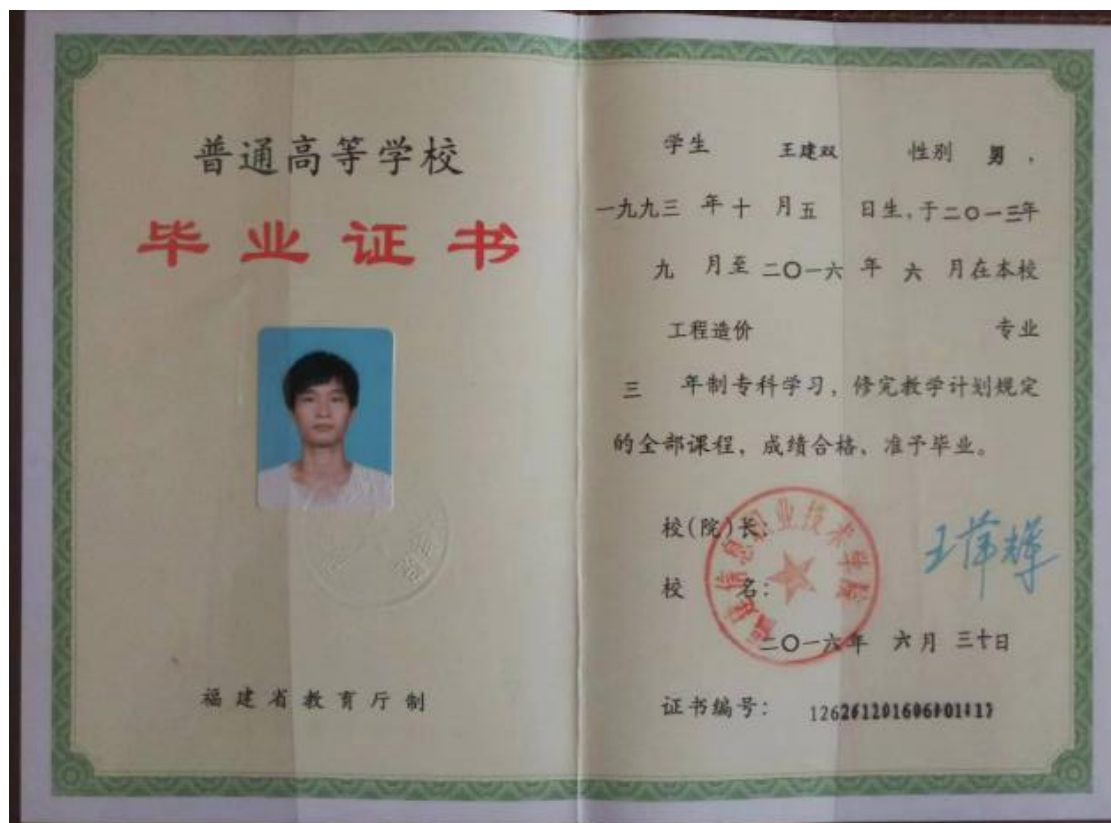 普通高等学校
毕业证书
福建省教育厅制
学生 王建双 性别 男，
一九九三 年 十 月 五 日生,于二〇一三年
九 月至 二〇一六 年 六 月在本校
工程造价 专业
三 年制专科学习，修完教学计划规定
的全部课程，成绩合格，准予毕业。
校(院)长:
校 名:
信息职业技术学院
二〇一六年 六月 三十日
证书编号: